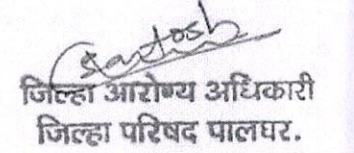 Santosh
जिल्हा आरोग्य अधिकारी
जिल्हा परिषद पालघर.